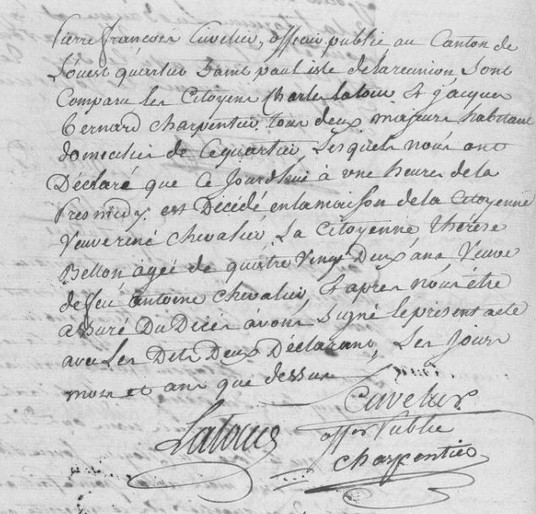 Pierre francois Cuvelier, officier public au Canton de
L'ouest quartier Saint paul isle de la reunion, sont
Comparu les Citoyens Charle Latour et jacques
bernard Charpentier tous deux majeurs habitans
domicilié de ce quartier, Lesquels nous ont
Déclaré que Ce jourdhui à une heure de la
Presmidy est Décédé en la maison de la Citoyenne
Veuve rené Chevalier, La Citoyenne thérèse
Bellon agée de quatre Vingt Deux ans Veuve
de feü antoine Chevalier, Et aprés nous être
assuré Du Décès avons Signé le present acte
avec Les Dets Deux Déclarans, Les jour
mois et an que dessus
Cuvelier
Latour offer Public
Charpentier